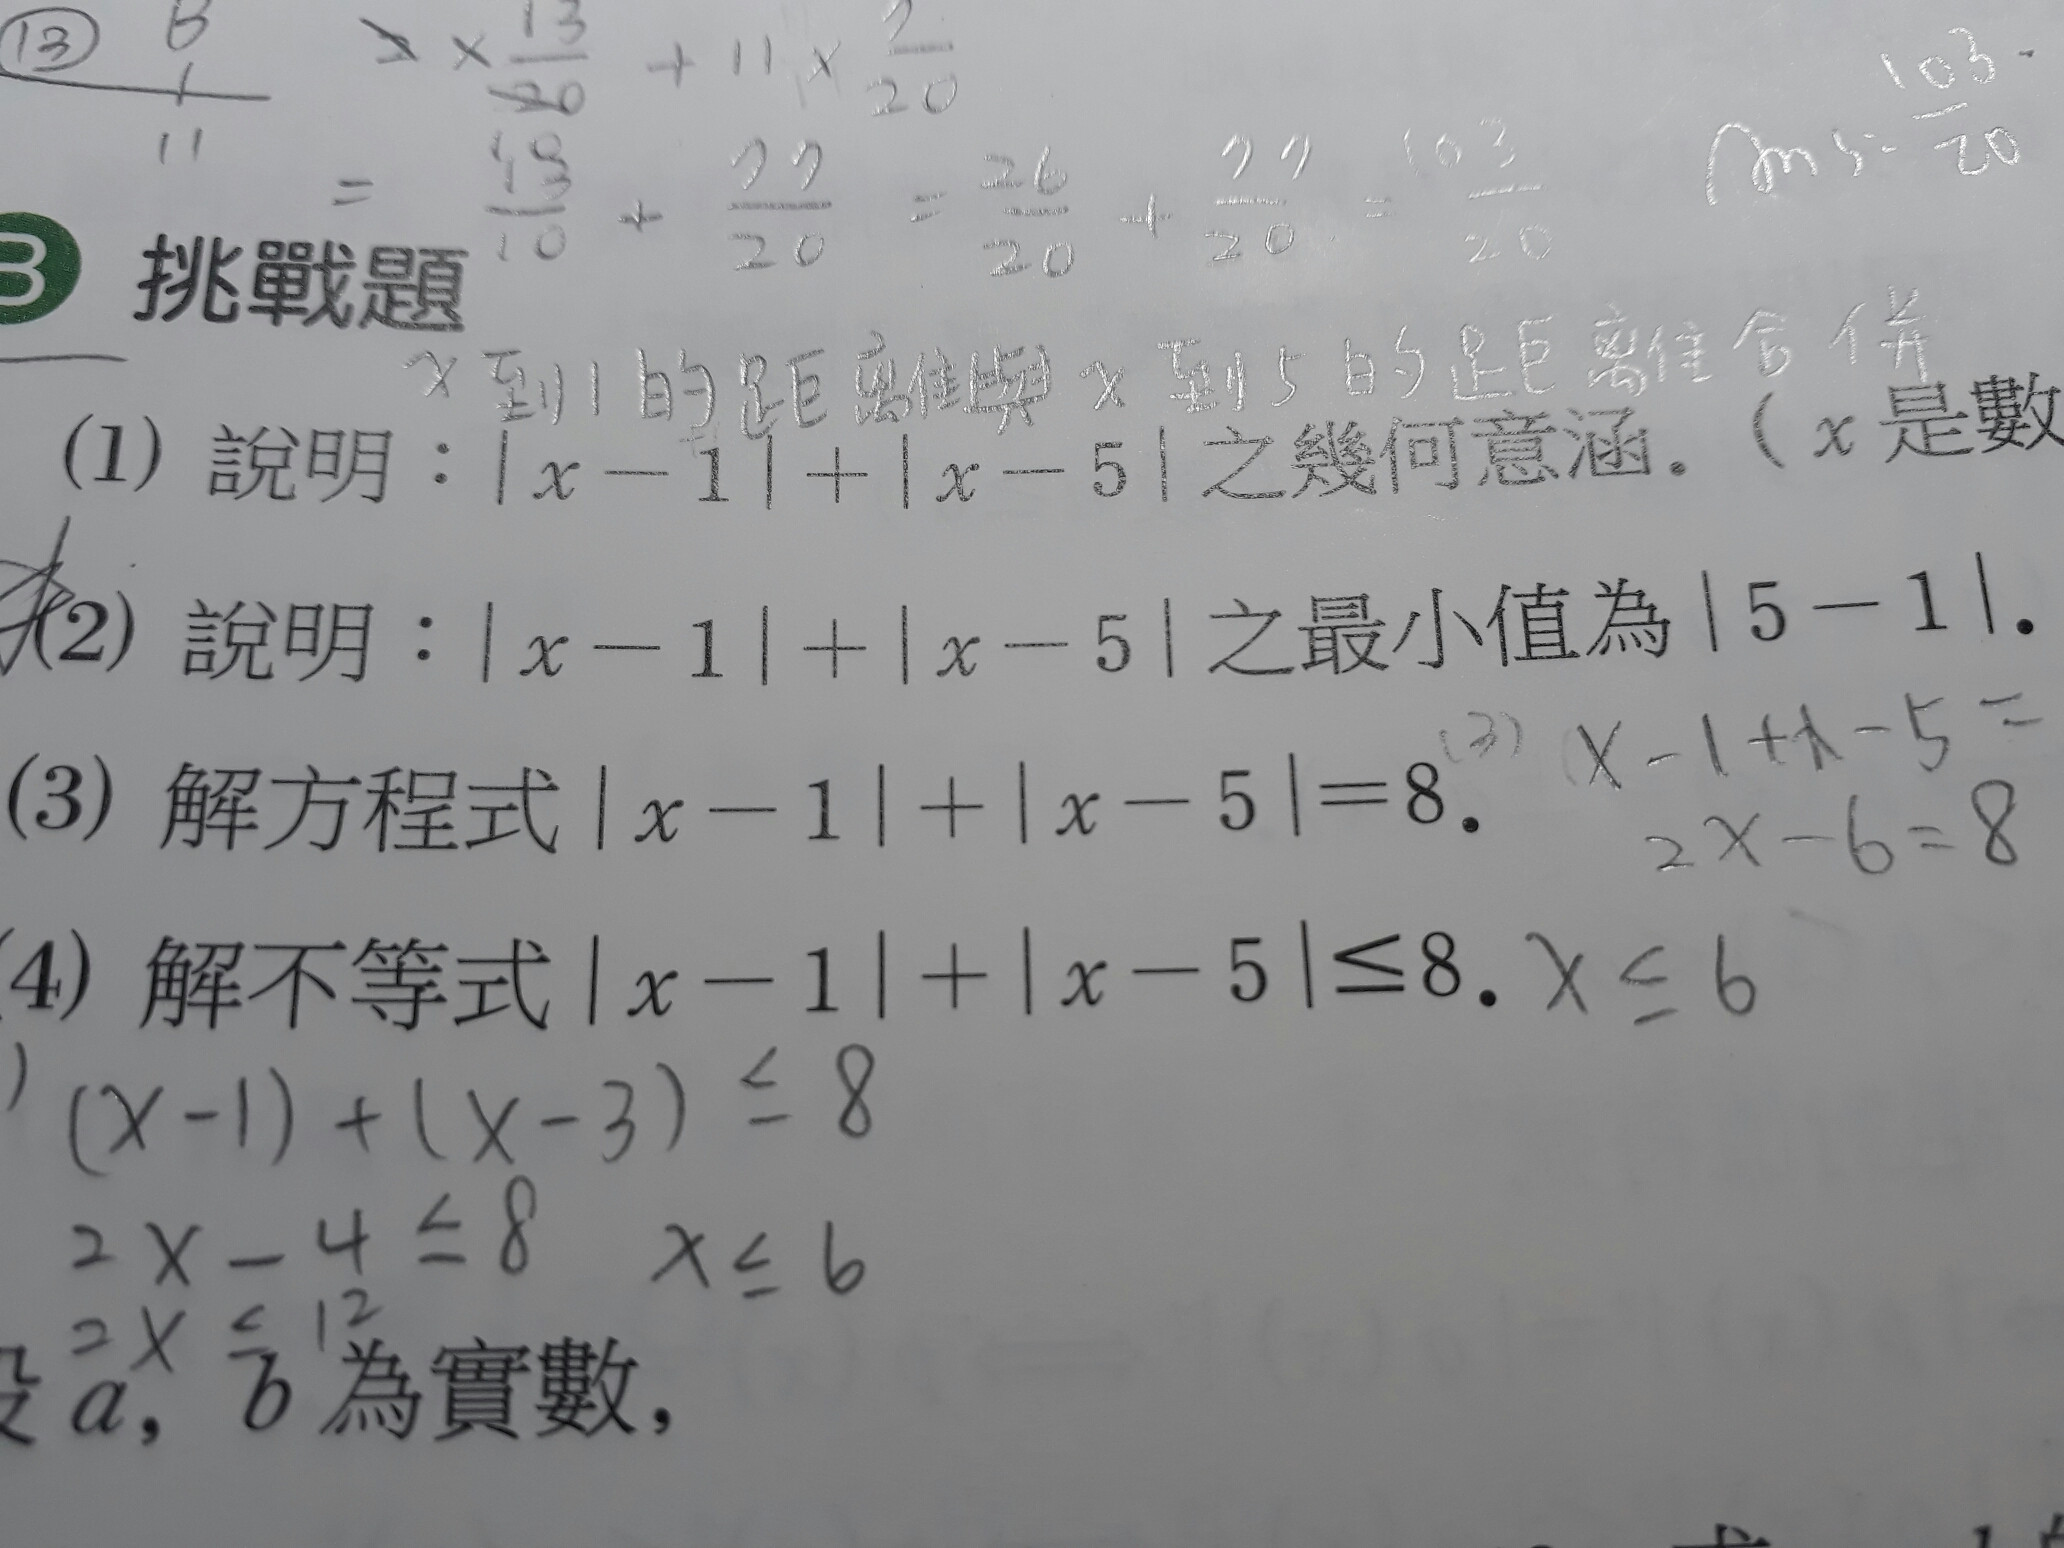 ⑬ 8 2 × 13/20 + 11 × 7/20
11
= 13/10 + 77/20 = 26/20 + 77/20 = 103/20 Ans: 103/20
3 挑戰題
x到1的距離與x到5的距離合併
(1) 說明：|x－1|＋|x－5|之幾何意涵．（x是數
(2) 說明：|x－1|＋|x－5|之最小值為|5－1|．
(3) 解方程式|x－1|＋|x－5|＝8．
(3) x-1+x-5=
2x-6=8
(4) 解不等式|x－1|＋|x－5|≤8． x≤6
(x-1)+(x-3)≤8
2x-4≤8 x≤6
2x≤12
設a，b為實數，